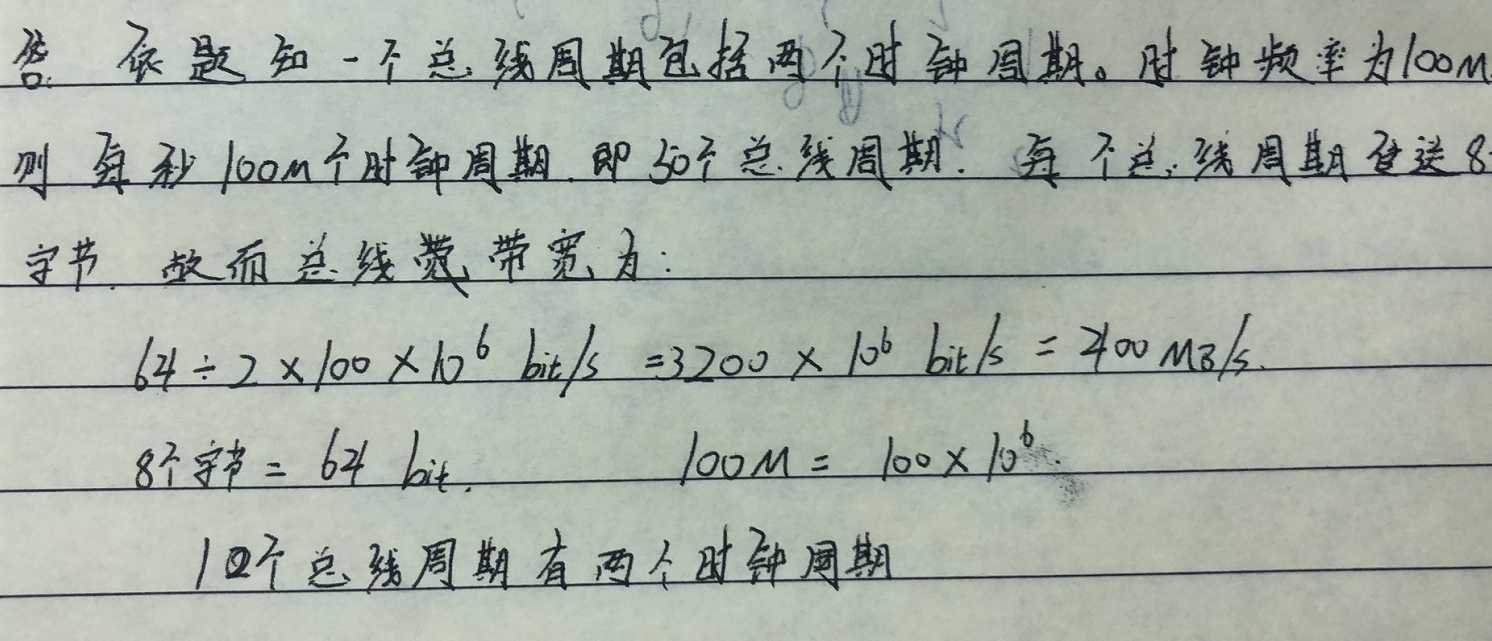 答: 依题知一个总线周期包括两个时钟周期。时钟频率为100M
则每秒100M个时钟周期.即50个总线周期. 每个总线周期传送8
字节. 故而总线带宽为:
64÷2×100×10⁶ bit/s =3200×10⁶ bit/s = 400MB/s.
8个字节= 64 bit. 100M= 100×10⁶.
1个总线周期有两个时钟周期